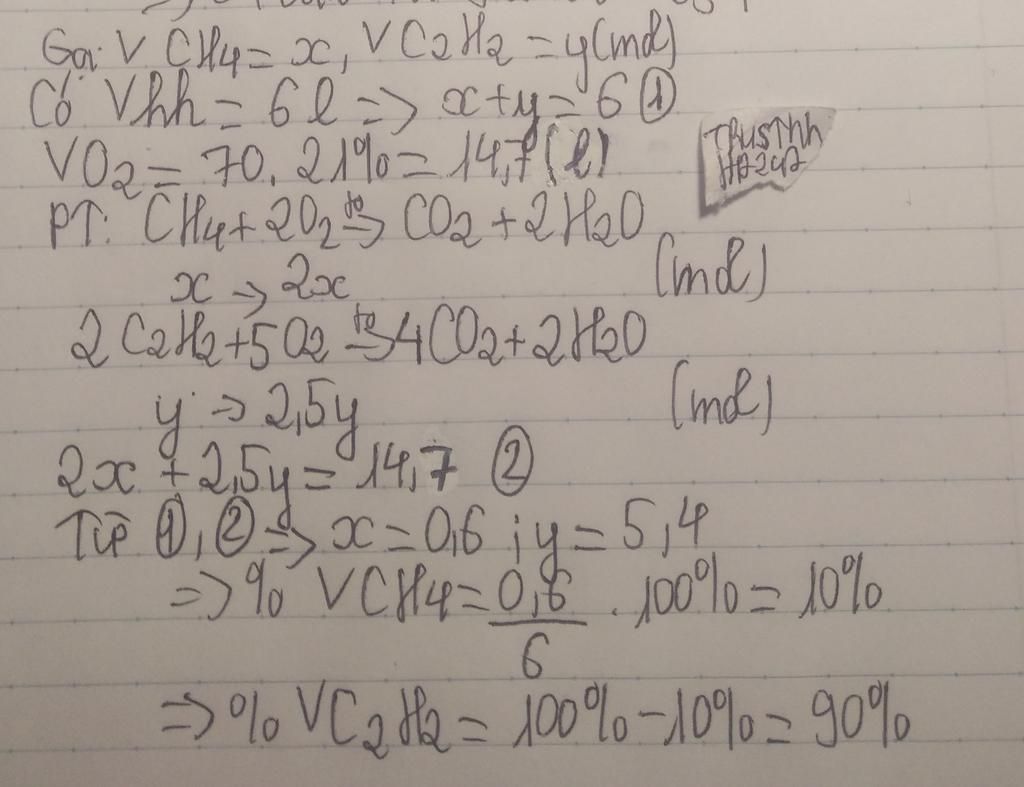 Gọi V CH4 = x, V C2H2 = y (mol)
Có Vhh = 6l => x+y = 6 ①
VO2 = 70. 21% = 14,7 (l)
PT: CH4 + 2O2 t°→ CO2 + 2H2O
x → 2x (mol)
2 C2H2 + 5O2 t°→ 4CO2 + 2H2O
y → 2,5y (mol)
2x + 2,5y = 14,7 ②
Từ ①, ② => x = 0,6 ; y = 5,4
=> % VCH4 = 0,6/6 . 100% = 10%
=> % VC2H2 = 100% - 10% = 90%